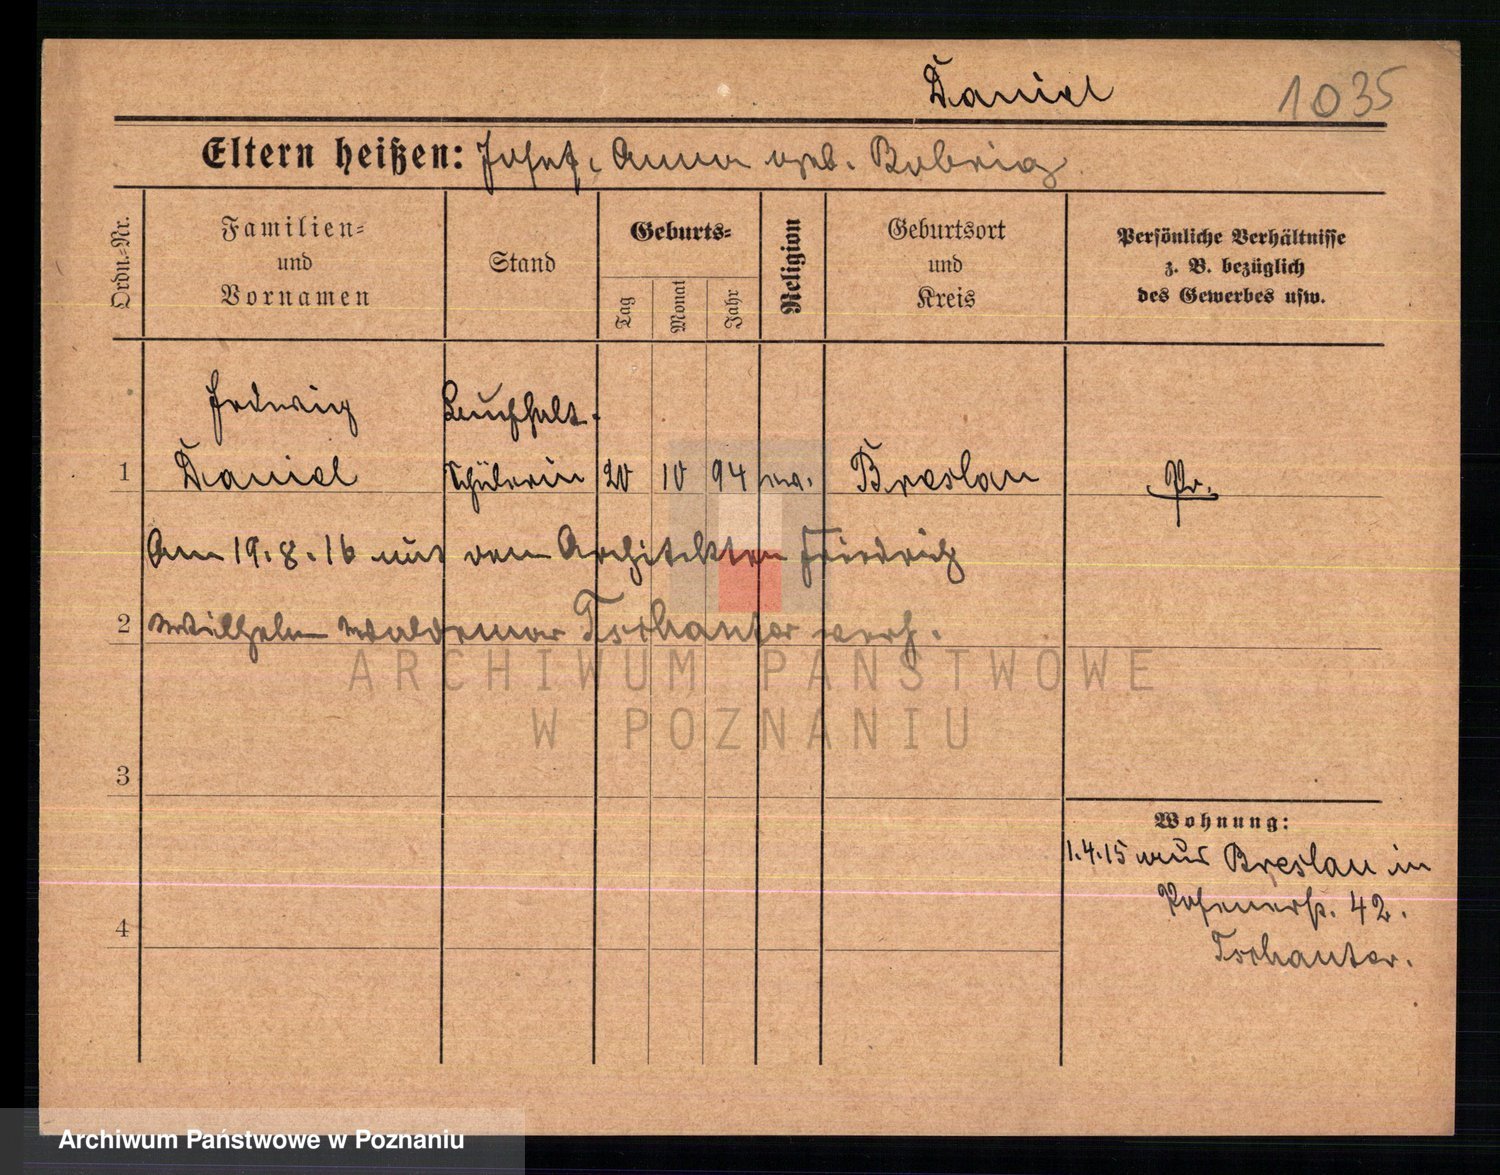 Daniel 1035
Eltern heißen: Josef, Anna geb. Bobrig
Ordn.-Nr.
Familien-
und
Vornamen
Stand
Geburts-
Tag
Monat
Jahr
Religion
Geburtsort
und
Kreis
Persönliche Verhältnisse
z. B. bezüglich
des Gewerbes usw.
Hedwig Buchhalt-
1 Daniel Schülerin 20 10 94 Breslau Pr.
Am 19.8.16 mit dem Architekten Friedrich
2 Wilhelm Waldemar Tschanter verh.
3
Wohnung:
1.4.15 aus Breslau in
Posenerstr. 42.
4
Tschanter.
ARCHIWUM PAŃSTWOWE
W POZNANIU
Archiwum Państwowe w Poznaniu